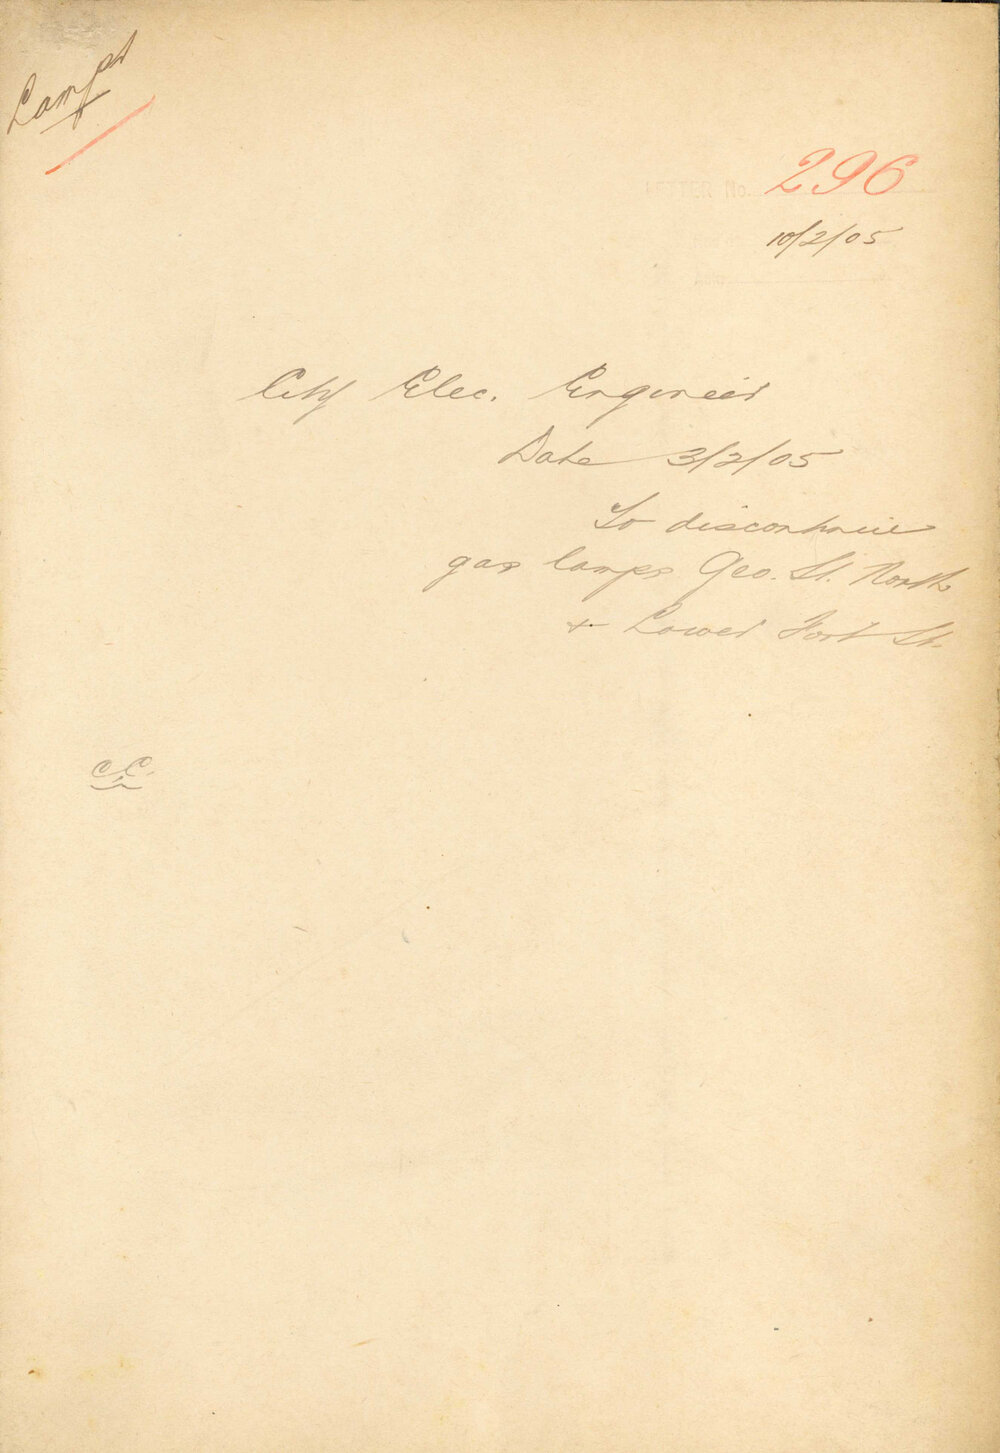 Lamps
LETTER No. 296
10/2/05
City Elec. Engineer
Date 3/2/05
To discontinue
gas lamps Geo. St. North
+ Lower Fort St.
C.C.